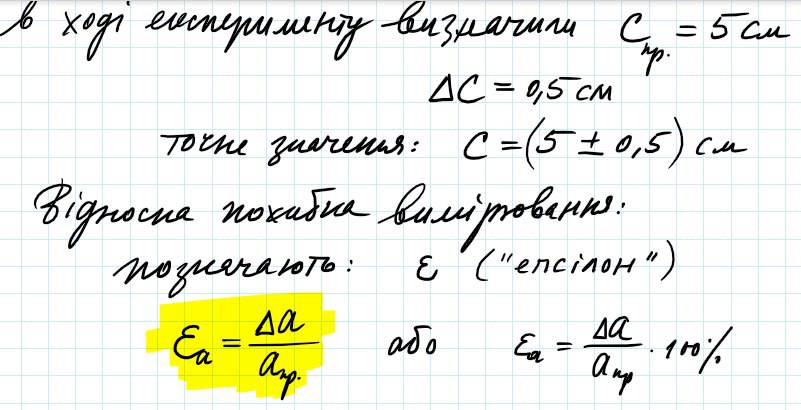 в ході експерименту визначили Cпр. = 5 см
ΔC = 0,5 см
точне значення: C = (5 ± 0,5) см
Відносна похибка вимірювання:
позначають: ε ("епсілон")
εa = Δa/aпр. або εa = Δa/aпр · 100%